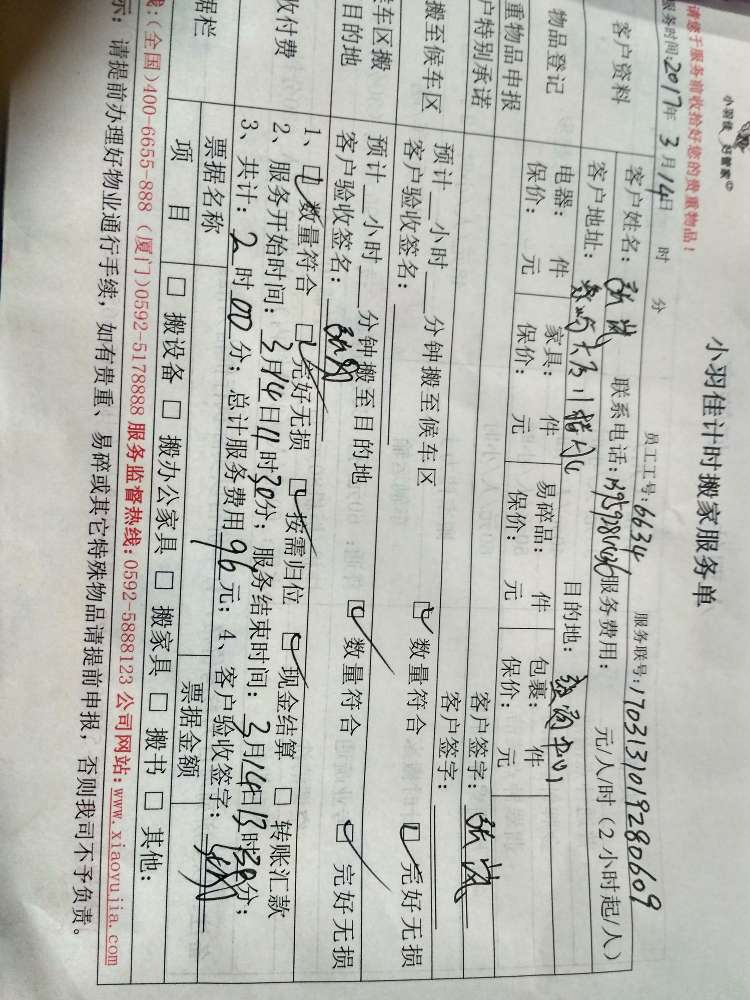 小羽佳 好管家
请您于服务前收拾好您的贵重物品！
小羽佳计时搬家服务单
服务时间:2017年3月14日 时 分 员工工号:6634 服务联号:1703131019280609
客户资料 客户姓名: 联系电话: 服务费用: 元/人/时(2小时起/人)
客户地址: 目的地:
物品登记 电器: 件 家具: 件 易碎品: 件 包裹: 件
保价: 元 保价: 元 保价: 元 保价: 元
重物品申报
户特别承诺 客户签字:
搬至候车区 预计__小时__分钟搬至候车区 ☑ 数量符合 ☑ 完好无损
客户验收签名: 客户签字:
车区搬
目的地 预计__小时__分钟搬至目的地 ☑ 数量符合 ☑ 完好无损
客户验收签名:
收付费 1、☑ 数量符合 ☑ 完好无损 ☑ 按需归位 ☑ 现金结算 □ 转账汇款
2、服务开始时间:3月14日11时30分；服务结束时间:3月14日13时30分；
3、共计:2时00分；总计服务费用96元；4、客户验收签字:
据栏 票据名称 票据金额
项 目 □ 搬设备 □ 搬办公家具 □ 搬家具 □ 搬书 □ 其他:
线:(全国)400-6655-888 (厦门)0592-5178888 服务监督热线:0592-5888123 公司网站:www.xiaoyujia.com
示: 请提前办理好物业通行手续，如有贵重、易碎或其它特殊物品请提前申报，否则我司不予负责。